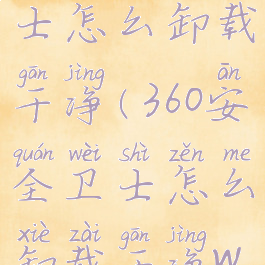 士怎么卸载
gān jìng ān
干净(360安
quán wèi shì zěn me
全卫士怎么
xiè zài gān jìng
卸载干净W